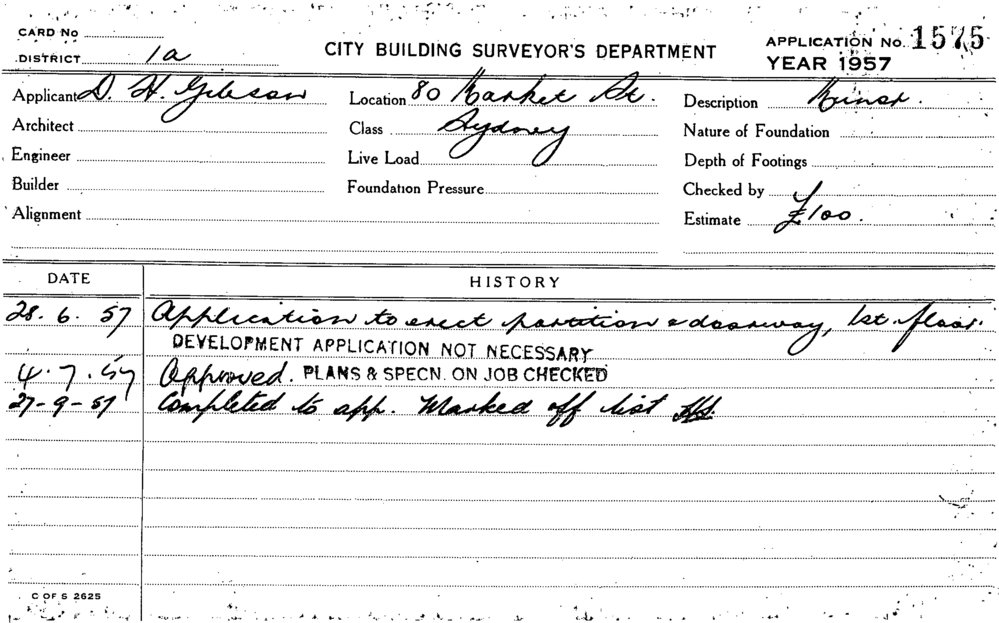 CARD No
DISTRICT 1a
CITY BUILDING SURVEYOR'S DEPARTMENT
APPLICATION No. 1575
YEAR 1957
Applicant D. H. Gibson
Location 80 Market St.
Description Minor.
Architect
Class Sydney
Nature of Foundation
Engineer
Live Load
Depth of Footings
Builder
Foundation Pressure
Checked by
Alignment
Estimate £100.
DATE HISTORY
28. 6. 57 Application to erect partition & doorway, 1st. floor.
DEVELOPMENT APPLICATION NOT NECESSARY
4. 7. 57 Approved. PLANS & SPECN. ON JOB CHECKED
27-9-57 Completed to app. Marked off list
C OF S 2625